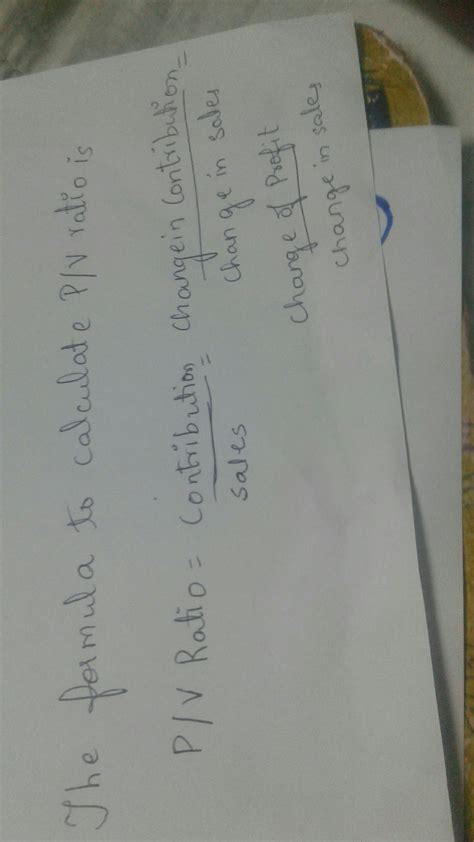 The formula to calculate P/V ratio is
P/V Ratio = Contribution = changein Contribution =
sales change in sales
change of Profit
change in sales